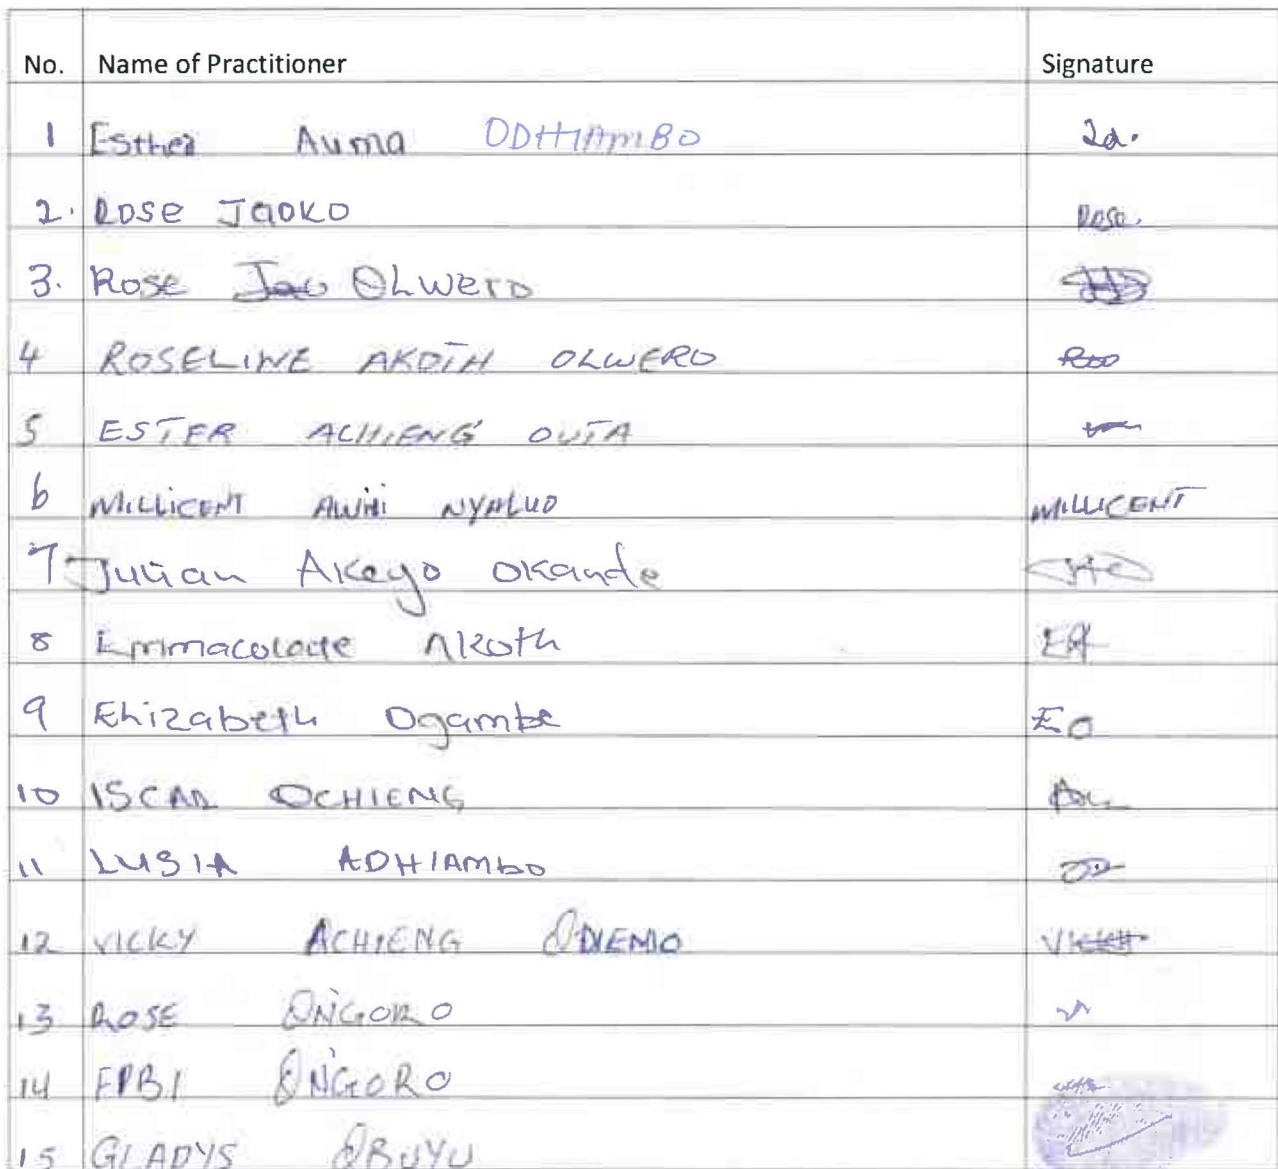 No. Name of Practitioner Signature
1 Esther Auma ODHIAMBO
2. Rose Jaoko Rose.
3. Rose Jao Olwero
4 ROSELINE AKOTH OLWERO
5 ESTER ACHIENG' OUTA
6 MILLICENT AWITI NYALUO MILLICENT
7 Julian Akeyo Okande
8 Emmacolate Akoth EA
9 Ehizabeth Ogambe EO
10 ISCAR OCHIENG
11 LUSIA ADHIAMBO
12 VICKY ACHIENG ODIEMO
13 ROSE ONG'ORO
14 ONG'ORO
15 GLADYS OBUYU